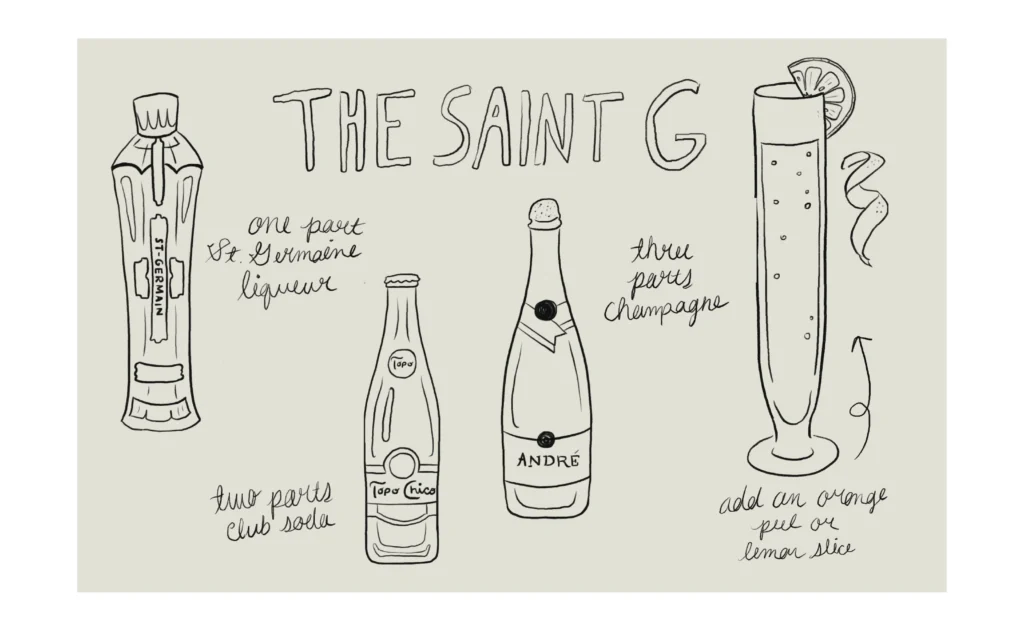 THE SAINT G
one part
St. Germaine
liqueur
ST-GERMAIN
two parts
club soda
Topo
Topo Chico
ANDRÉ
three
parts
champagne
add an orange
peel or
lemon slice